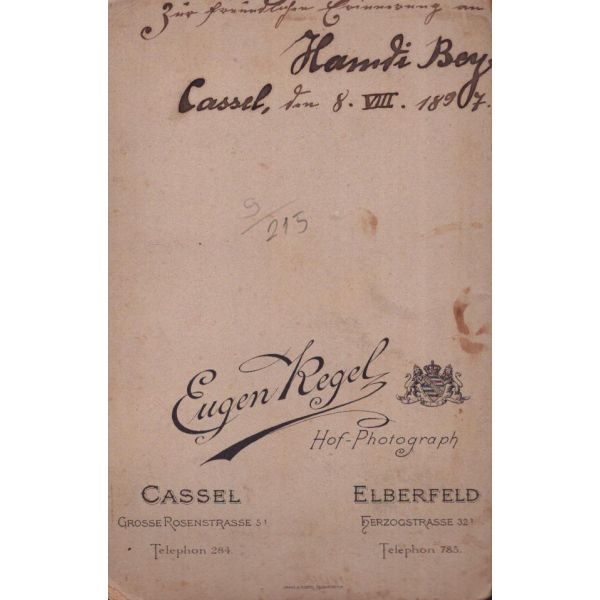 Zur freundlichen Erinnerung an
Hamdi Bey
Cassel, den 8. VIII. 1897.
9/215
Eugen Kegel
Hof-Photograph
CASSEL
GROSSE ROSENSTRASSE 5¹
Telephon 284.
ELBERFELD
HERZOGSTRASSE 32¹
Telephon 785.